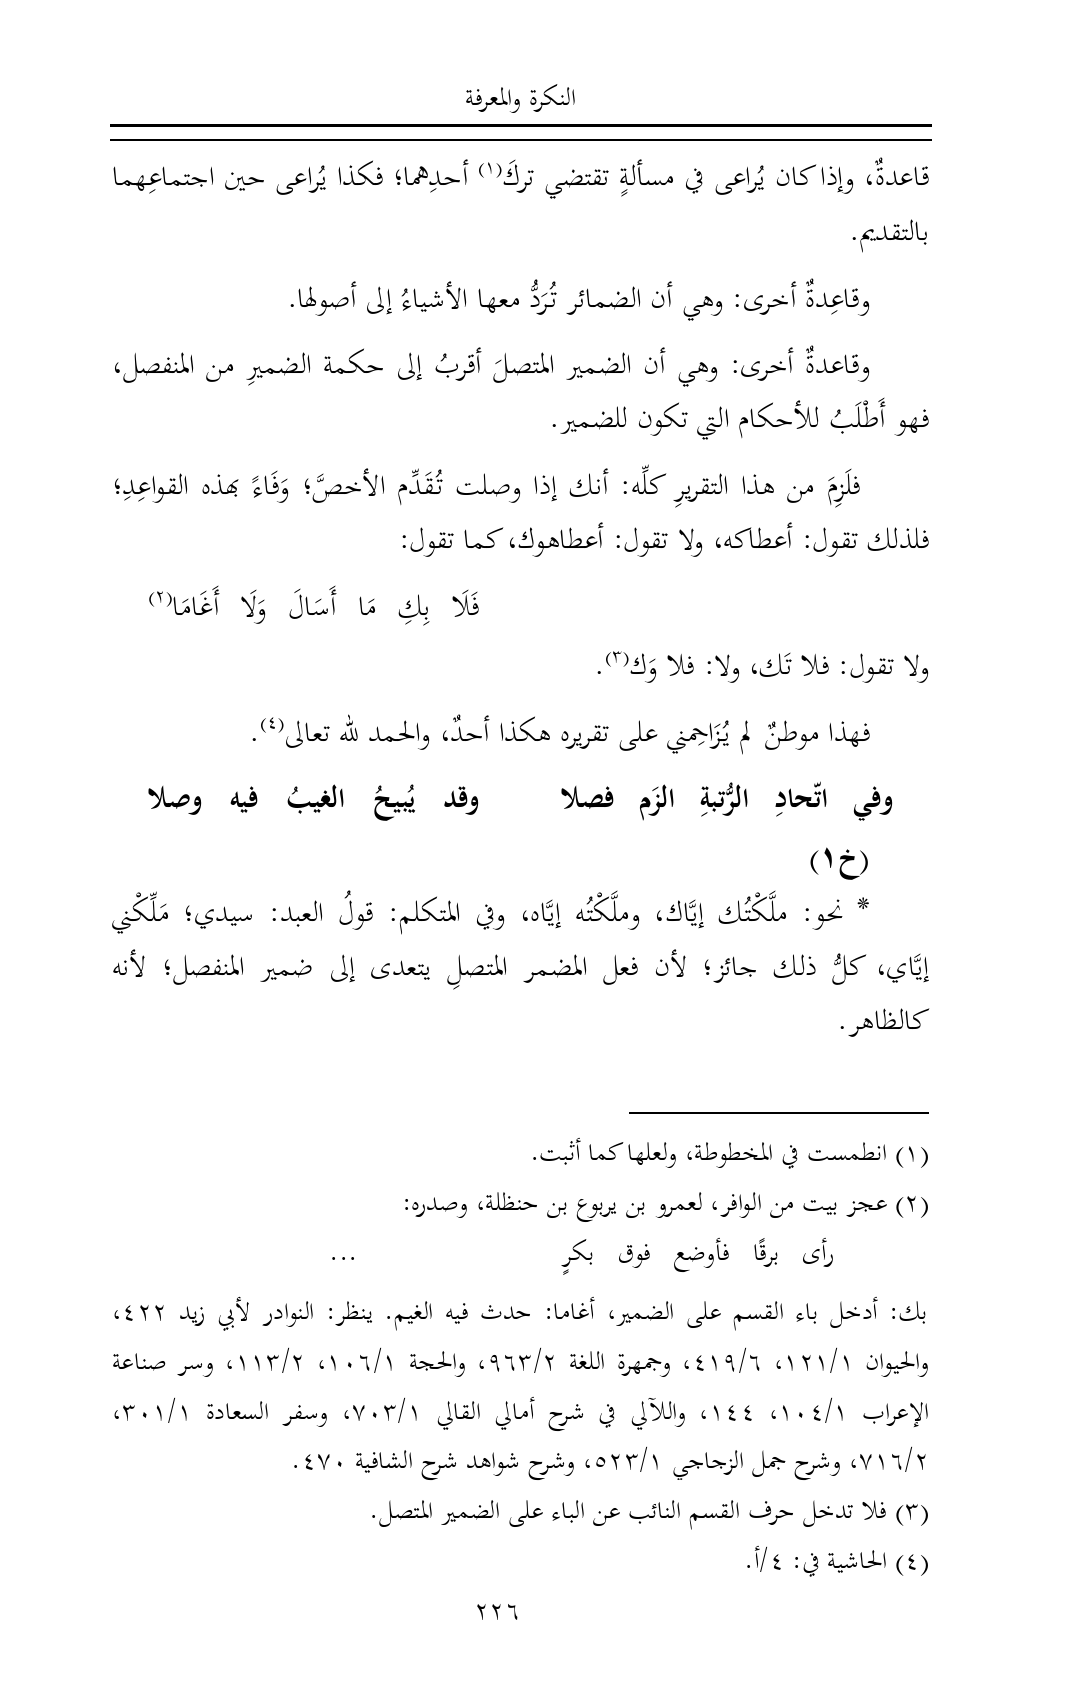 النكرة والمعرفة
قاعدةٌ، وإذا كان يُراعى في مسألةٍ تقتضي تركَ(١) أحدِهما؛ فكذا يُراعى حين اجتماعِهما
بالتقديم.
وقاعِدةٌ أخرى: وهي أن الضمائر تُرَدُّ معها الأشياءُ إلى أصولها.
وقاعدةٌ أخرى: وهي أن الضمير المتصلَ أقربُ إلى حكمة الضميرِ من المنفصل،
فهو أَطْلَبُ للأحكام التي تكون للضمير.
فلَزِمَ من هذا التقريرِ كلِّه: أنك إذا وصلت تُقَدِّم الأخصَّ؛ وَفَاءً بهذه القواعِدِ؛
فلذلك تقول: أعطاكه، ولا تقول: أعطاهوك، كما تقول:
فَلَا بِكِ مَا أَسَالَ وَلَا أَغَامَا(٢)
ولا تقول: فلا تَك، ولا: فلا وَك(٣).
فهذا موطنٌ لم يُزَاحِمني على تقريره هكذا أحدٌ، والحمد لله تعالى(٤).
وفي اتّحادِ الرُّتبةِ الزَم فصلا وقد يُبيحُ الغيبُ فيه وصلا
(خ١)
* نحو: ملَّكْتُك إيَّاك، وملَّكْتُه إيَّاه، وفي المتكلم: قولُ العبد: سيدي؛ مَلِّكْني
إيَّاي، كلُّ ذلك جائز؛ لأن فعل المضمر المتصلِ يتعدى إلى ضمير المنفصل؛ لأنه
كالظاهر.
(١) انطمست في المخطوطة، ولعلها كما أثبت.
(٢) عجز بيت من الوافر، لعمرو بن يربوع بن حنظلة، وصدره:
رأى برقًا فأوضع فوق بكرٍ ...
بك: أدخل باء القسم على الضمير، أغاما: حدث فيه الغيم. ينظر: النوادر لأبي زيد ٤٢٢،
والحيوان ١٢١/١، ٤١٩/٦، وجمهرة اللغة ٩٦٣/٢، والحجة ١٠٦/١، ١١٣/٢، وسر صناعة
الإعراب ١٠٤/١، ١٤٤، واللآلي في شرح أمالي القالي ٧٠٣/١، وسفر السعادة ٣٠١/١،
٧١٦/٢، وشرح جمل الزجاجي ٥٢٣/١، وشرح شواهد شرح الشافية ٤٧٠.
(٣) فلا تدخل حرف القسم النائب عن الباء على الضمير المتصل.
(٤) الحاشية في: ٤/أ.
٢٢٦